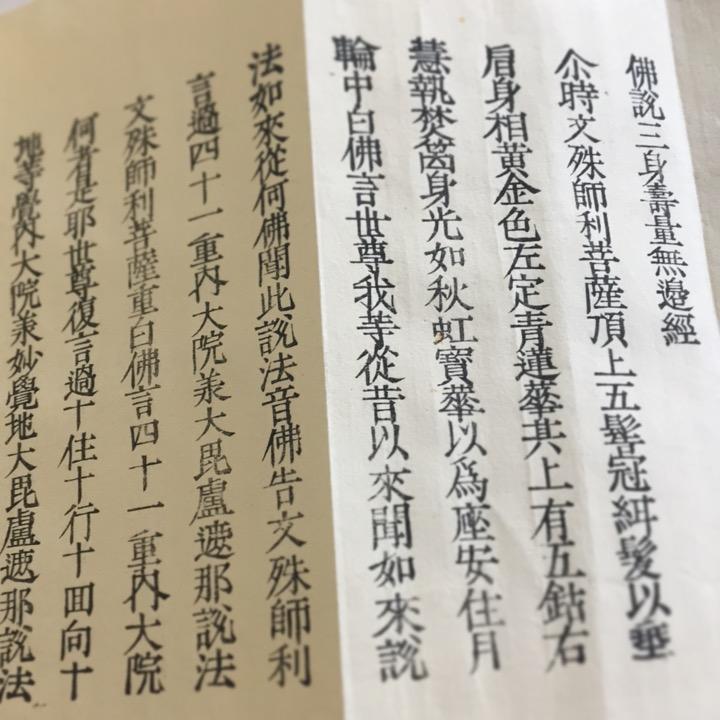 佛說三身壽量無邊經
尒時文殊師利菩薩頂上五髻冠紺髮以垂
肩身相黃金色左定青蓮華其上有五鈷右
慧執梵篋身光如秋虹寶華以為座安住月
輪中白佛言世尊我等從昔以來聞如來說
法如來從何佛聞此說法音佛告文殊師利
言過四十一重內大院業大毘盧遮那說法
文殊師利菩薩重白佛言四十一重內大院
何者是耶世尊復言過十住十行十回向十
地等覺內大院業妙覺地大毘盧遮那說法